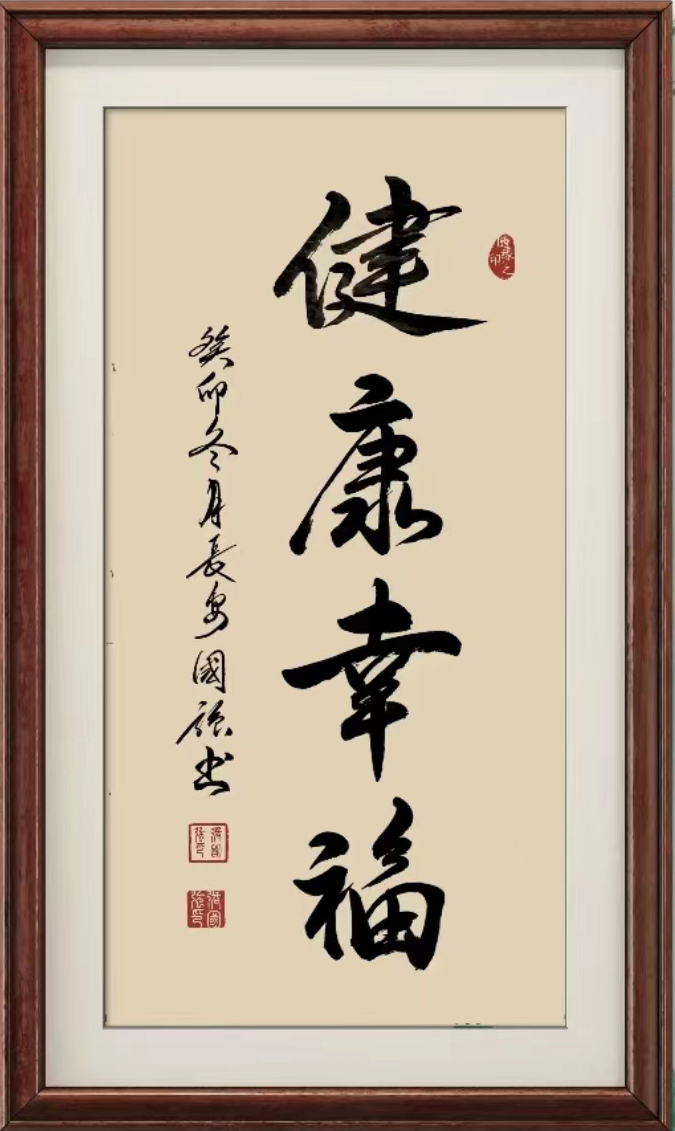 健康幸福
癸卯冬月長安國強书